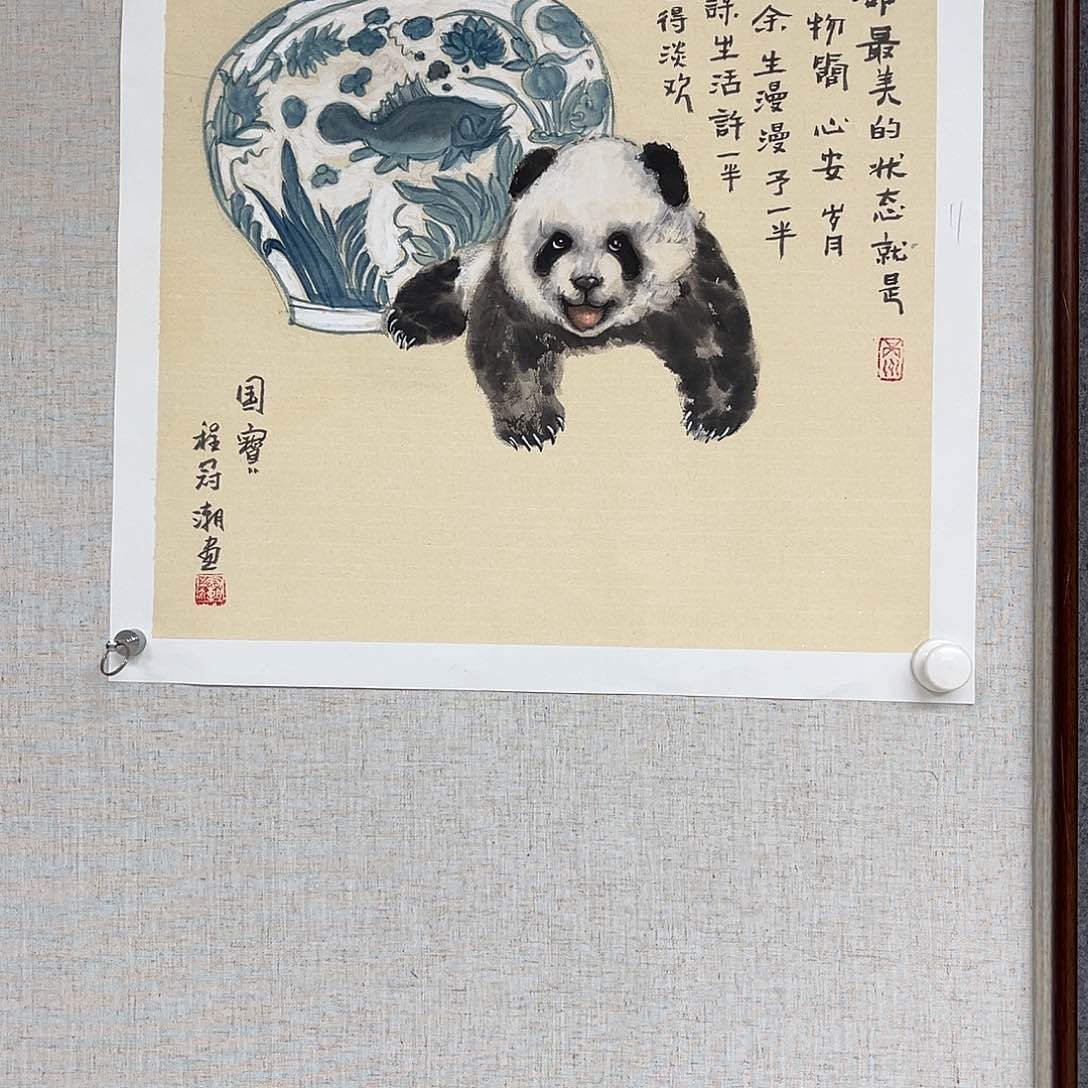 最美的状态就是
物简 心安 岁月
余生漫漫 予一半
生活許一半
得淡欢
国寶
程冠潮画